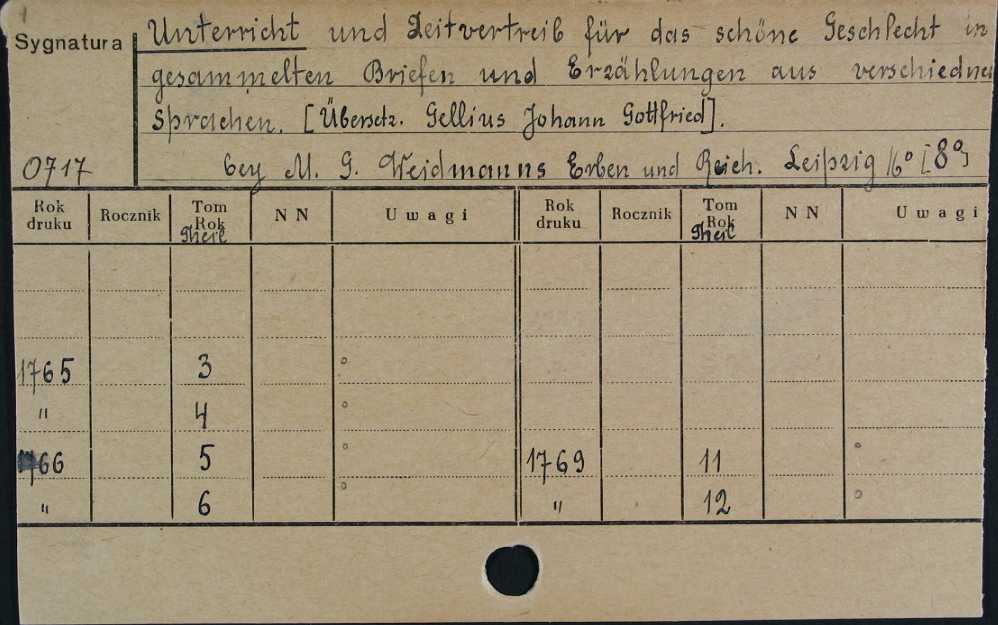 Sygnatura
Unterricht und Zeitvertreib für das schöne Geschlecht in
gesammelten Briefen und Erzählungen aus verschiednen
Sprachen. [Übersetz. Gellius Johann Gottfried].
0717
bey M. G. Weidmanns Erben und Reich. Leipzig 16° [8°]
Rok druku Rocznik Tom Rok Theil NN Uwagi Rok druku Rocznik Tom Rok Theil NN Uwagi
1765 3 °
" 4 °
1766 5 ° 1769 11 °
" 6 ° " 12 °